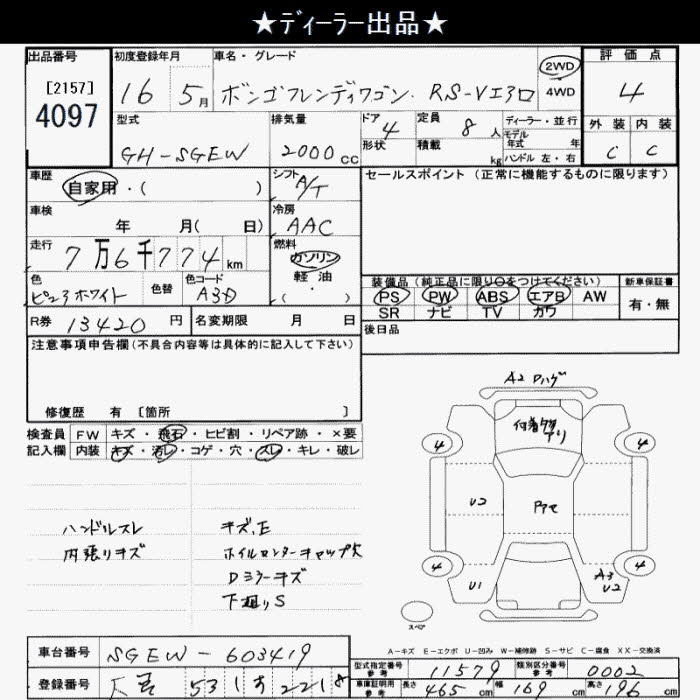 ★ディーラー出品★
出品番号
[2157]
4097
初度登録年月
16 5月
車名・グレード
ボンゴフレンディワゴン. RS-Vエアロ
2WD
4WD
評価点
4
外装 内装
C C
型式
GH-SGEW
排気量
2000cc
ドア 4
形状
定員 8人
積載 kg
ディーラー・並行
モデル
年式 年
ハンドル 左・右
車歴
自家用・( )
シフト
A/T
車検
年 月( 日)
冷房
AAC
走行
7万6千774km
燃料
ガソリン
軽油
・
( )
色
色替
色コード
A3D
R券 13420円
名変期限 月 日
セールスポイント (正常に機能するものに限ります)
装備品 (純正品に限り○をつけてください)
PS PW ABS エアB AW
SR ナビ TV カワ
新車保証書
有・無
後日品
注意事項申告欄(不具合内容等は具体的に記入して下さい)
修復歴 有 [箇所 ]
検査員
記入欄
FW キズ・飛石・ヒビ割・リペア跡・×要
内装 キズ・汚レ・コゲ・穴・スレ・キレ・破レ
ハンドルスレ
内張りキズ
キズ,E
ホイルセンターキャップ欠
Dミラーキズ
下廻りS
A2
付着物
アリ
4 4
U2
4 4
U1
A3
U2
スペア
A-キズ E-エクボ U-凹み W-補修跡 S-サビ C-腐食 XX-交換済
車台番号 SGEW-603419
登録番号
型式指定番号
参考
11579
類別区分番号
参考
0002
車庫証明用
参考
長さ 465cm 幅 169cm 高さ 196cm